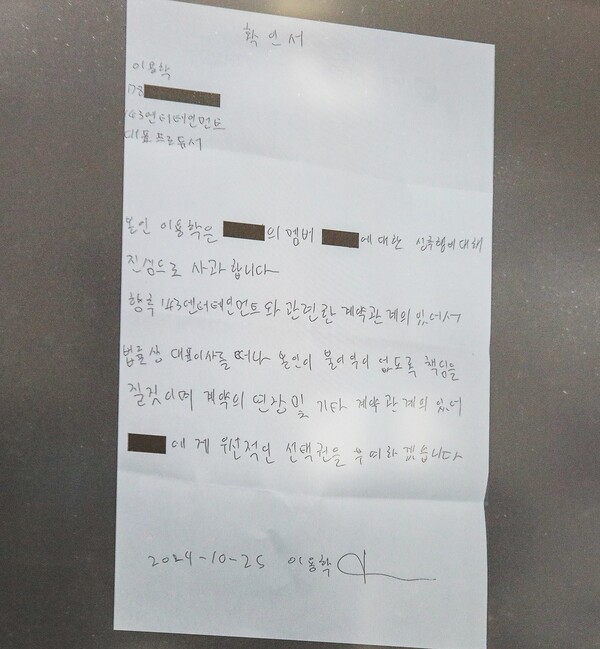 확인서
이용학
143엔터테인먼트
대표프로듀서
본인 이용학은 의 멤버 에 대한 성추행에대해
진심으로 사과합니다
향후 143엔터테인먼트와 관련한 계약관계의 있어서
법률상 대표이사를 떠나 본인이 불이익이 없도록 책임을
질것이며 계약의 연장 및 기타 계약관계의 있어
에게 우선적인 선택권을 부여하겠습니다
2024-10-25 이용학